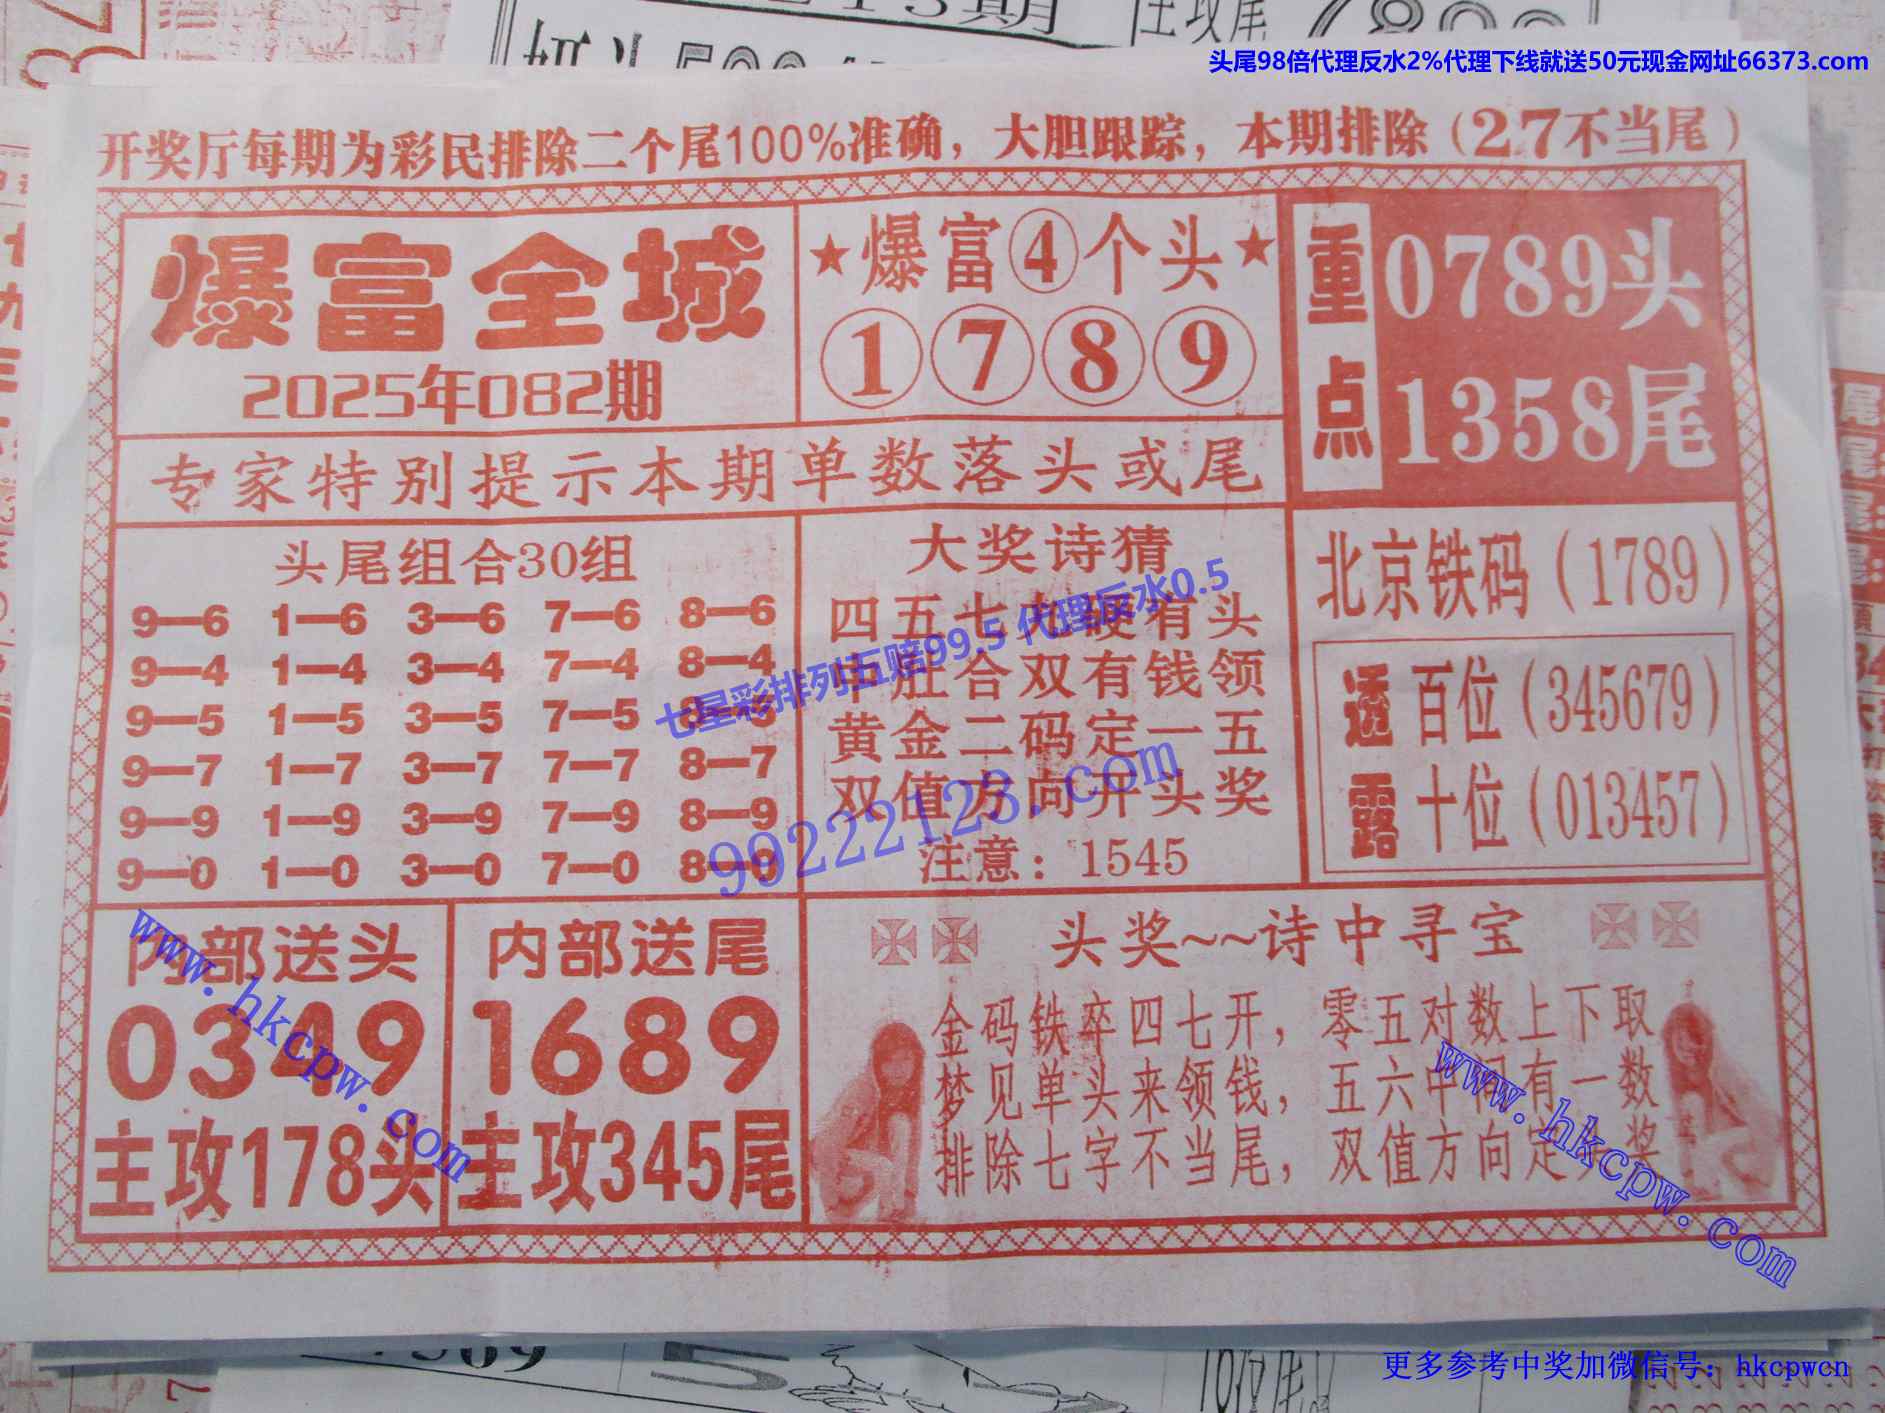 头尾98倍代理反水2%代理下线就送50元现金网址66373.com
开奖厅每期为彩民排除二个尾100%准确，大胆跟踪，本期排除（27不当尾）
爆富全城
2025年082期
★爆富④个头★
① ⑦ ⑧ ⑨
重点
0789头
1358尾
专家特别提示本期单数落头或尾
头尾组合30组
9—6 1—6 3—6 7—6 8—6
9—4 1—4 3—4 7—4 8—4
9—5 1—5 3—5 7—5 8—5
9—7 1—7 3—7 7—7 8—7
9—9 1—9 3—9 7—9 8—9
9—0 1—0 3—0 7—0 8—0
大奖诗猜
四五七九硬有头
串胜合双有钱领
黄金二码定一五
双值方向开头奖
注意：1545
七星彩排列五赔99.5 代理反水0.5
99222123.com
北京铁码（1789）
透露
百位（345679）
十位（013457）
内部送头
0349
主攻178头
内部送尾
1689
主攻345尾
头奖~~诗中寻宝
金码铁卒四七开，零五对数上下取
梦见单头来领钱，五六中间有一数
排除七字不当尾，双值方向定头奖
www.hkcpw.com
www.hkcpw.com
更多参考中奖加微信号：hkcpwcn